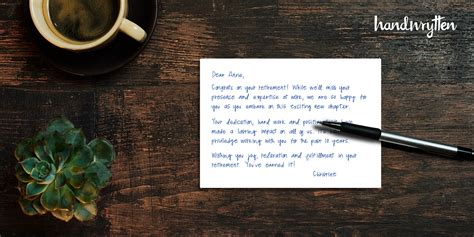 handwrytten
Dear Anne,
Congrats on your retirement! While we'll miss your
presence and expertise at work, we are so happy to
you as you embark on this exciting new chapter.
Your dedication, hard work and
made a lasting impact on all of us.
privilege working with you to the past 10 years.
Wishing you joy, relaxation and fulfillment in your
retirement. You've earned it!
Christine